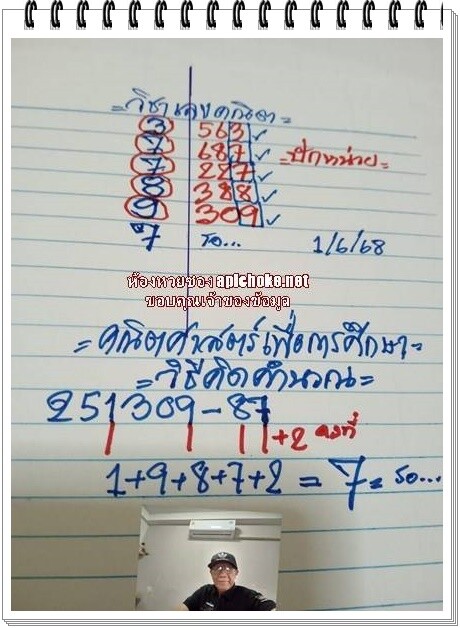 = วิชาเลขคณิตา =
3 563 ✓
7 687 ✓ = ปักหน่วย =
7 227 ✓
8 388 ✓
9 309 ✓
7 รอ... 1/6/68
ห้องหวยซอง apichoke.net
ขอบคุณเจ้าของข้อมูล
= คณิตศาสตร์เพื่อการศึกษา =
= วิธีคิดคำนวณ =
251309-87
+2 คงที่
1+9+8+7+2=7= รอ...